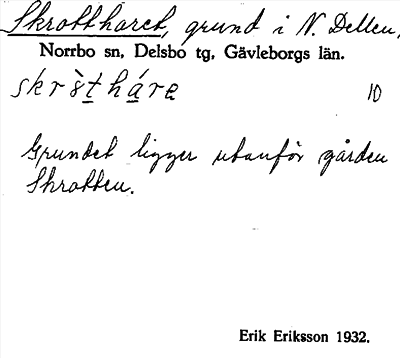 Skrottharet, grund i N. Dellen,
Norrbo sn, Delsbo tg, Gävleborgs län.
skrò̀t háre 10
Grundet ligger utanför gården
Skrotten.
Erik Eriksson 1932.